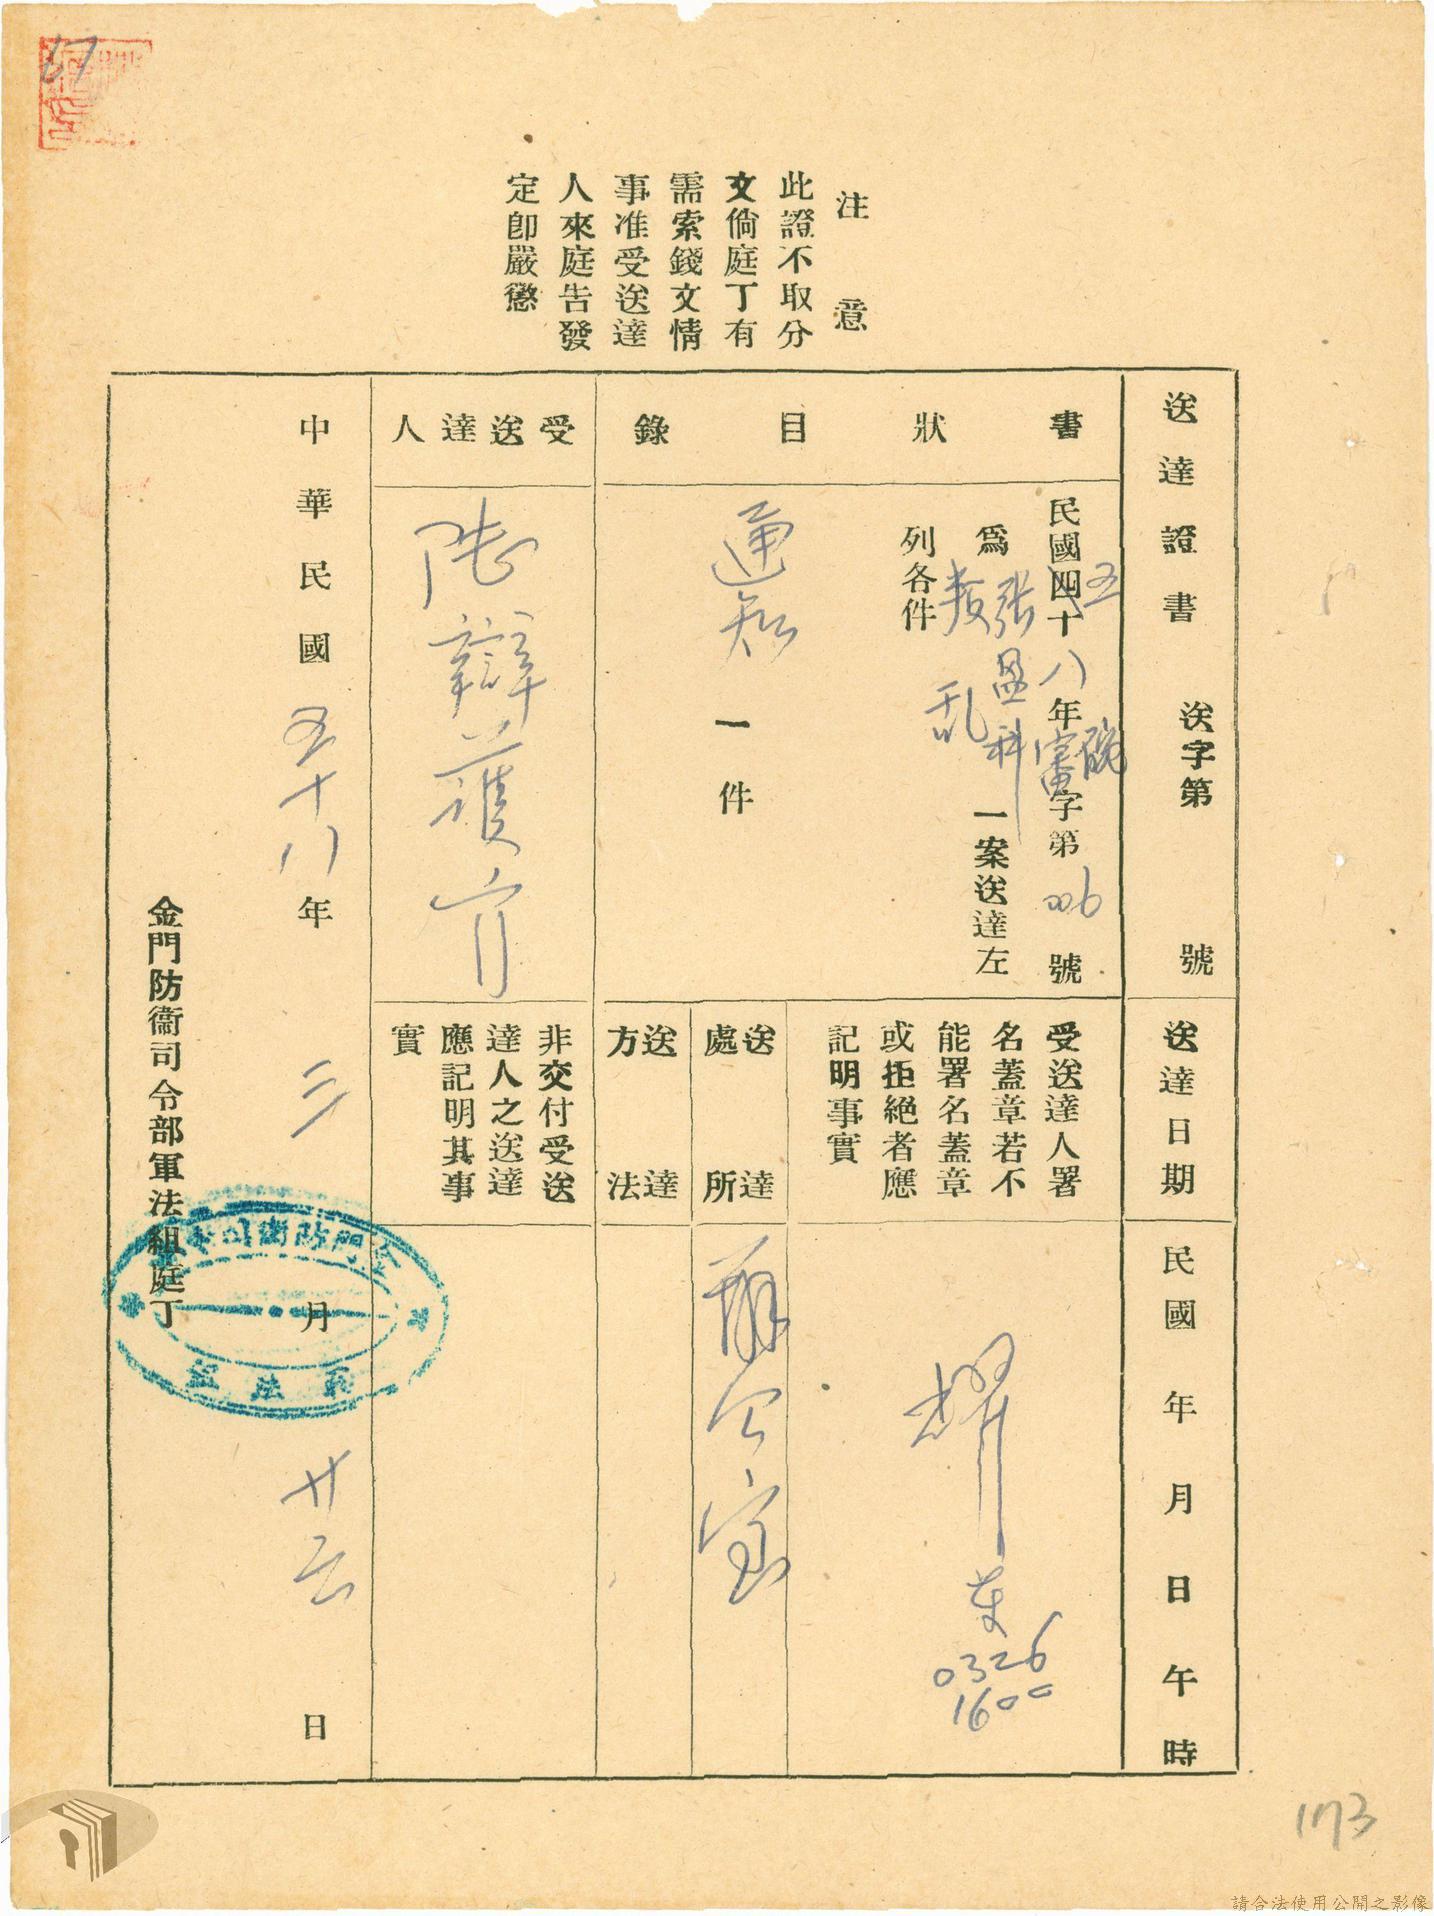 67
注意
此證不取分
文倘庭丁有
需索錢文情
事准受送達
人來庭告發
定卽嚴懲
送達證書
送字第　號
送達日期
民國　年　月　日　午　時
書狀目錄
民國四十五八年　字第006號
為張盈科叛乱一案送達左
列各件
通知一件
受送達人署
名蓋章若不
能署名蓋章
或拒絕者應
記明事實
耀
0326
1600
送達處所
辦公室
送達方法
受送達人
陸辯護官
非交付受送
達人之送達
應記明其事
實
中華民國五十八年三月廿六日
金門防衞司令部軍法組庭丁
金門防衛司令部
軍法組
173
請合法使用公開之影像